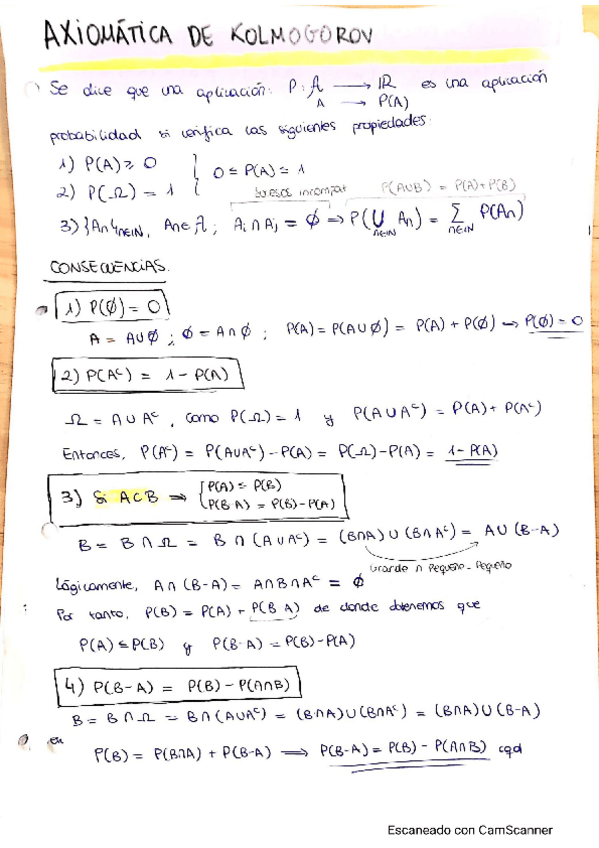 AXIOMÁTICA DE KOLMOGOROV
Se dice que una aplicación: P: A → IR es una aplicación
A → P(A)
probabilidad si verifica las siguientes propiedades:
1) P(A) ≥ 0
2) P(Ω) = 1
0 ≤ P(A) ≤ 1
Sucesos incompat
P(A∪B) = P(A)+P(B)
3) {An}n∈IN, An∈A; Ai ∩ Aj = Ø ⇒ P(∪n∈IN An) = Σn∈IN P(An)
CONSECUENCIAS.
1) P(Ø) = 0
A = A∪Ø ; Ø = A∩Ø ; P(A) = P(A∪Ø) = P(A) + P(Ø) → P(Ø) = 0
2) P(Aᶜ) = 1 - P(A)
Ω = A∪Aᶜ, como P(Ω) = 1 y P(A∪Aᶜ) = P(A) + P(Aᶜ)
Entonces, P(Aᶜ) = P(A∪Aᶜ) - P(A) = P(Ω) - P(A) = 1 - P(A)
3) Si A⊂B ⇒ { P(A) ≤ P(B)
P(B-A) = P(B) - P(A)
B = B∩Ω = B∩(A∪Aᶜ) = (B∩A)∪(B∩Aᶜ) = A∪(B-A)
Grande ∩ Pequeño = Pequeño
Lógicamente, A∩(B-A) = A∩B∩Aᶜ = Ø
Por tanto, P(B) = P(A) + P(B-A) de donde obtenemos que
P(A) ≤ P(B) y P(B-A) = P(B) - P(A)
4) P(B-A) = P(B) - P(A∩B)
B = B∩Ω = B∩(A∪Aᶜ) = (B∩A)∪(B∩Aᶜ) = (B∩A)∪(B-A)
en
P(B) = P(B∩A) + P(B-A) → P(B-A) = P(B) - P(A∩B) cqd
Escaneado con CamScanner